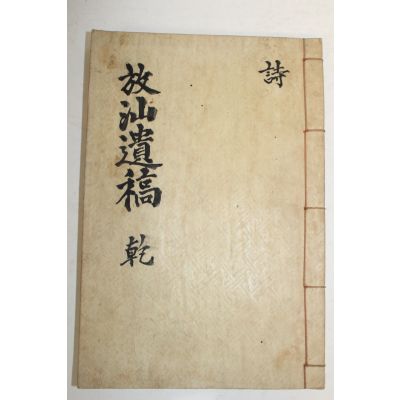 詩
放汕遺稿 乾